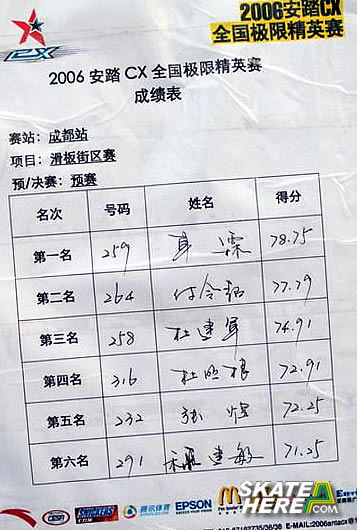 CX
2006安踏CX
全国极限精英赛
2006 安踏 CX 全国极限精英赛
成绩表
赛站：成都站
项目：滑板街区赛
预/决赛：预赛
名次 号码 姓名 得分
第一名 259 车霖 78.75
第二名 264 付合韬 77.79
第三名 258 杜建军 74.91
第四名 316 杜 72.91
第五名 232 张煜 72.25
第六名 291 建敏 71.25
SNICKERS
腾讯体育
EPSON
SKATE
HERE!
COM
E-MAIL:2006antacx